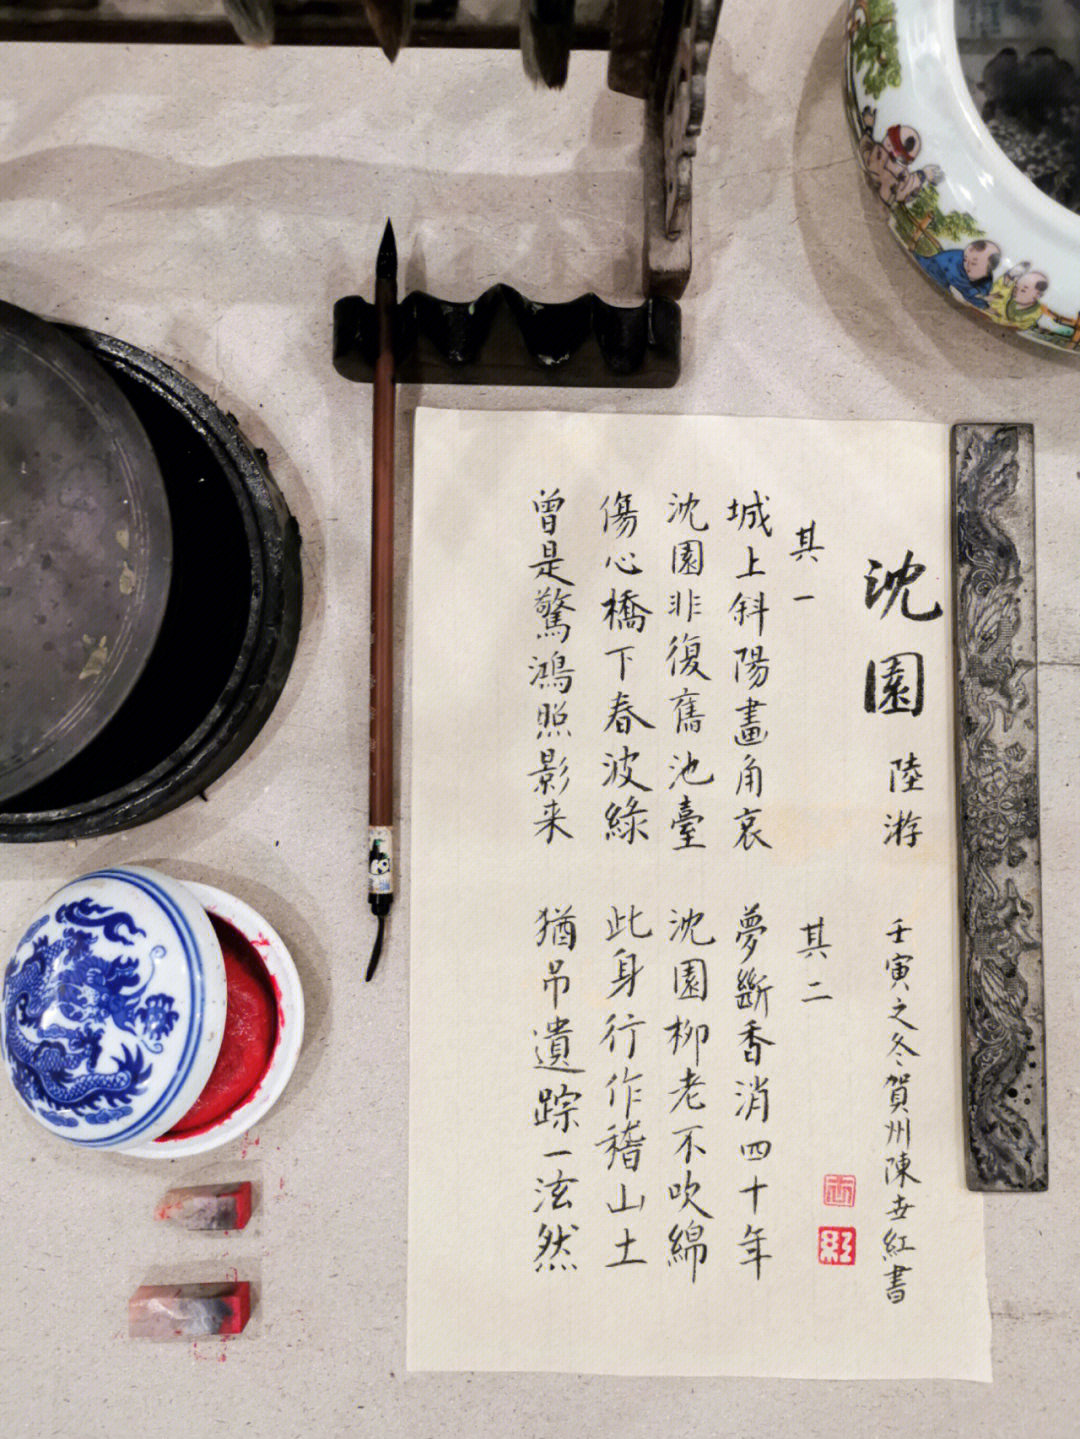 沈園
陸游
其一
城上斜陽畫角哀
沈園非復舊池臺
傷心橋下春波綠
曾是驚鴻照影来
其二
夢斷香消四十年
沈園柳老不吹綿
此身行作稽山土
猶吊遺踪一泫然
壬寅之冬賀州陳世紅書
紅